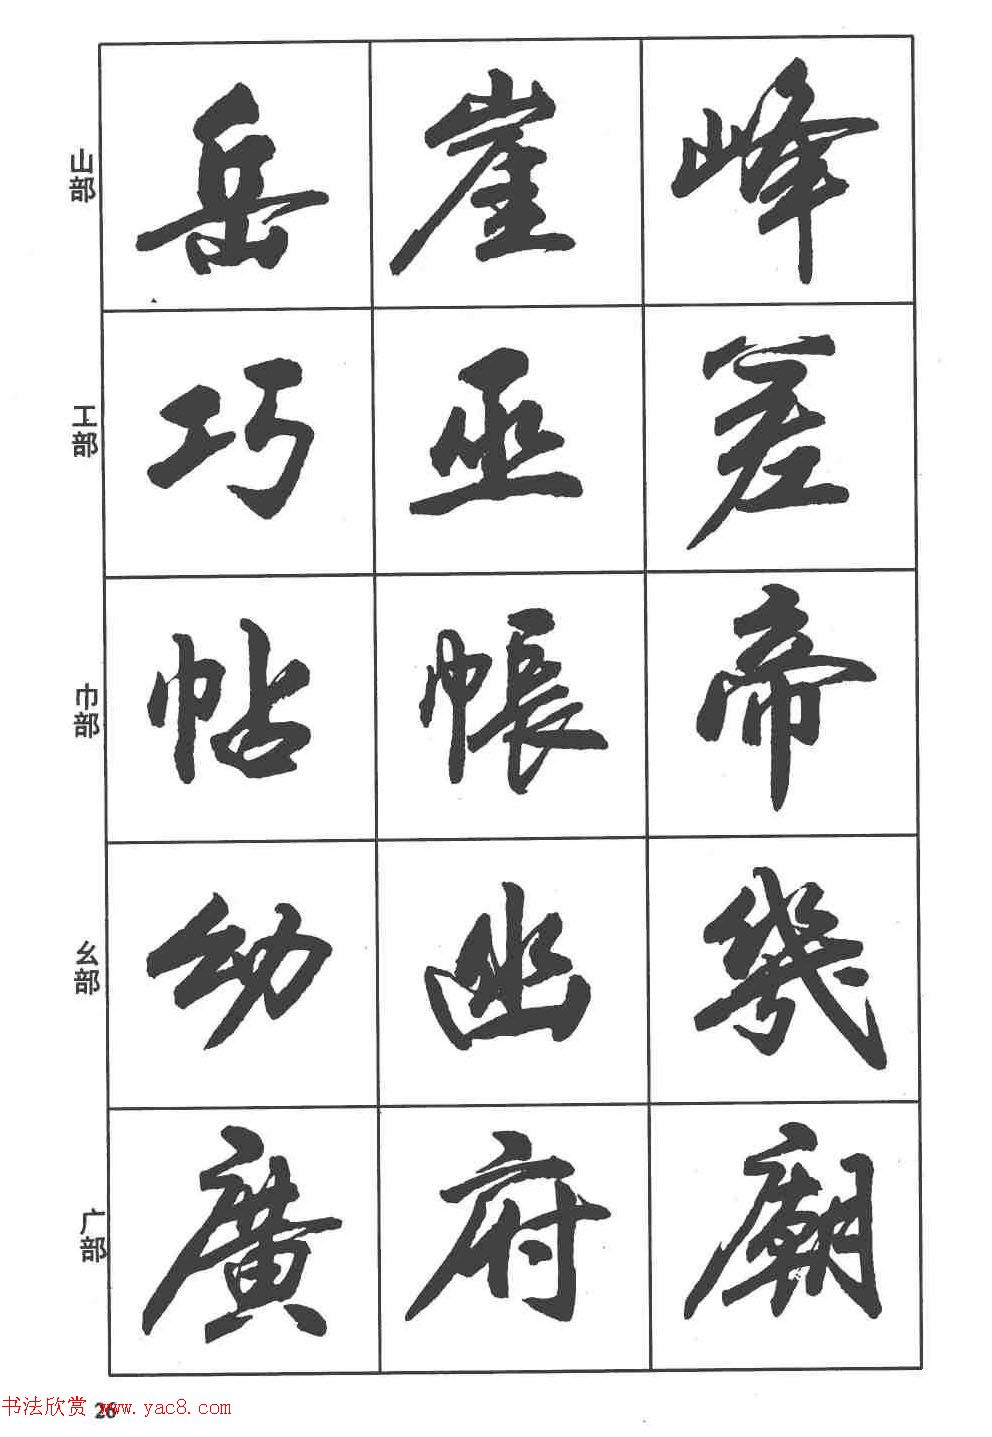 山部 岳 崖 峰
工部 巧 巫 差
巾部 帖 帳 帝
幺部 幼 幽 幾
广部 廣 府 廟
书法欣赏 www.yac8.com
26